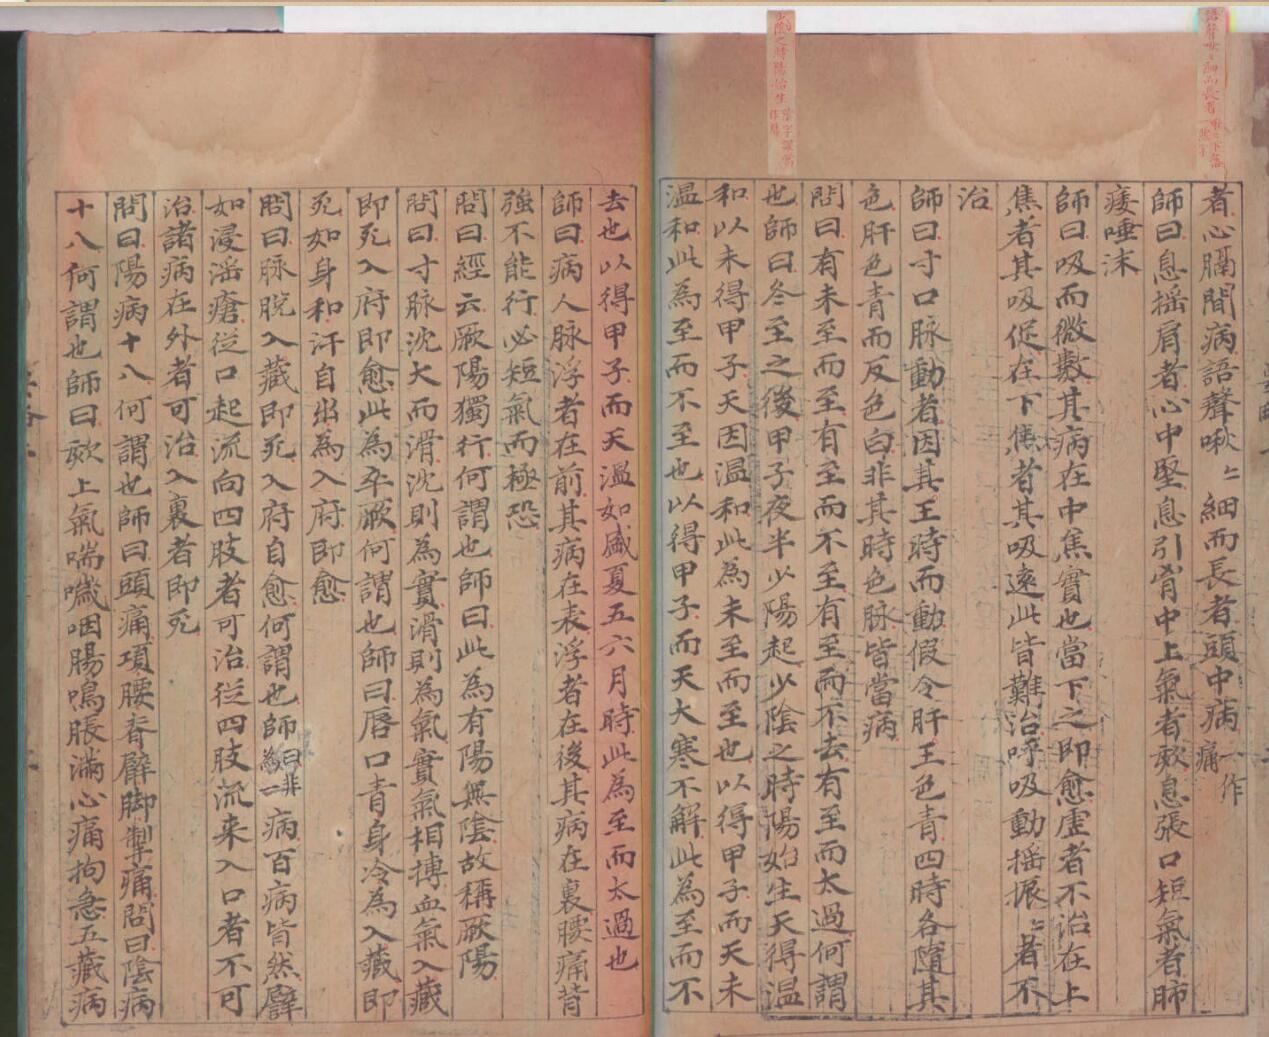 者心膈間病語聲啾〻細而長者頭中病一作痛
師曰息摇肩者心中堅息引胷中上氣者欬息張口短氣者肺
痿唾沫
師曰吸而微數其病在中焦實也當下之即愈虛者不治在上
焦者其吸促在下焦者其吸遠此皆難治呼吸動摇振〻者不
治
師曰寸口脉動者因其王時而動假令肝王色青四時各隨其
色肝色青而反色白非其時色脉皆當病
問曰有未至而至有至而不至有至而不去有至而太過何謂
也師曰冬至之後甲子夜半少陽起少陰之時陽始生天得温
和以未得甲子天因温和此為未至而至也以得甲子而天未
温和此為至而不至也以得甲子而天大寒不解此為至而不
去也以得甲子而天温如盛夏五六月時此為至而太過也
師曰病人脉浮者在前其病在表浮者在後其病在裏腰痛背
強不能行必短氣而極恐
問曰經云厥陽獨行何謂也師曰此為有陽無陰故稱厥陽
問曰寸脉沈大而滑沈則為實滑則為氣實氣相摶血氣入藏
即死入府即愈此為卒厥何謂也師曰唇口青身冷為入藏即
死如身和汗自出為入府即愈
問曰脉脱入藏即死入府自愈何謂也師曰非為一病百病皆然譬
如浸滛瘡從口起流向四肢者可治從四肢流来入口者不可
治諸病在外者可治入裏者即死
問曰陽病十八何謂也師曰頭痛項腰脊臂脚掣痛問曰陰病
十八何謂也師曰欬上氣喘噦咽腸鳴脹滿心痛拘急五藏病